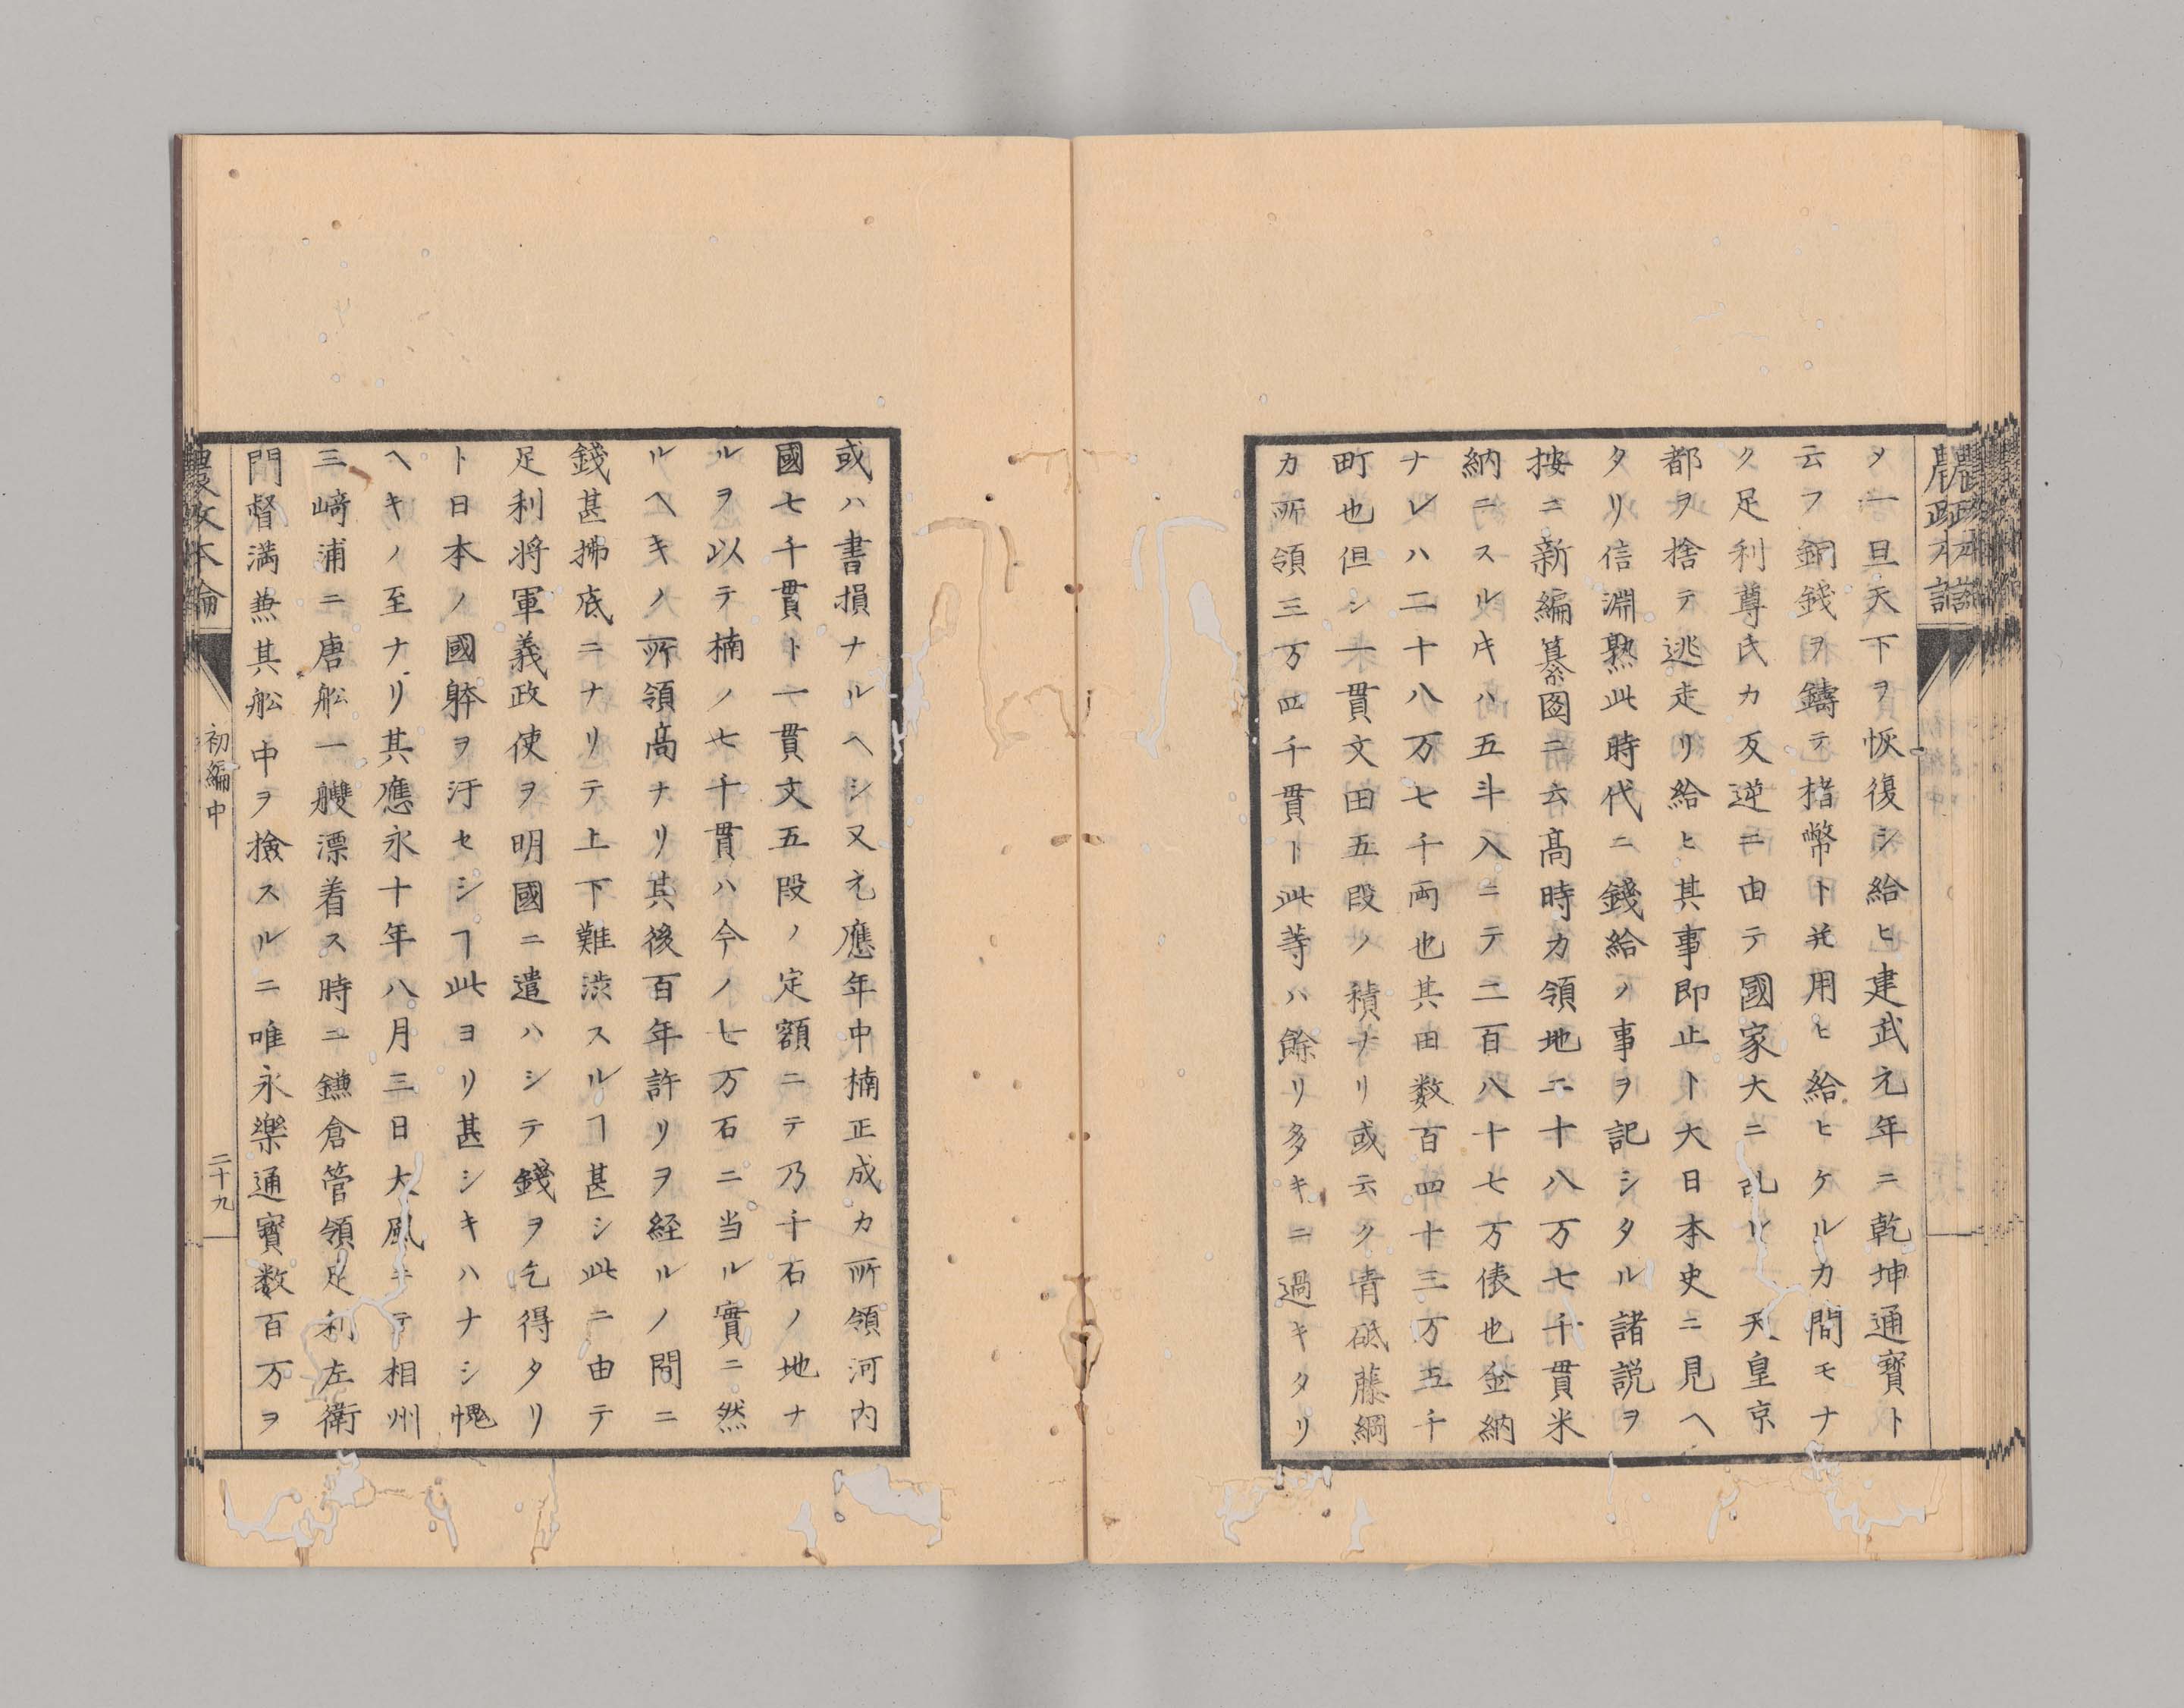 農政本論
ヲ一旦天下ヲ恢復シ給ヒ建武元年ニ乾坤通寳ト
云フ銅錢ヲ鑄テ楮幣ト并用ヒ給ヒケルカ間モナ
ク足利尊氏カ反逆ニ由テ國家大ニ乱リ天皇京
都ヲ捨テ逃走リ給ヒ其事即止ト大日本史ニ見ヘ
タリ信淵熟此時代ニ錢給ノ事ヲ記シタル諸説ヲ
按ニ新編纂図ニ云高時カ領地二十八万七千貫米
納ニスル𪜈ハ五斗入ニテ二百八十七万俵也金納
ナレハ二十八万七千両也其田数百四十三万五千
町也但シ一貫文田五段ノ積ナリ或云ク青砥藤綱
カ所領三万四千貫ト此等ハ餘リ多キニ過キタリ
或ハ書損ナルヘシ又元應年中楠正成カ所領河内
國七千貫ト一貫文五段ノ定額ニテ乃千石ノ地ナ
ルヲ以テ楠ノ七千貫ハ今ノ七万石ニ当ル實ニ然
ルヘキノ所領高ナリ其後百年許リヲ経ルノ間ニ
錢甚拂底ニナリテ上下難渋スルヿ甚シ此ニ由テ
足利将軍義政使ヲ明國ニ遣ハシテ錢ヲ乞得タリ
ト日本ノ國躰ヲ汙セシヿ此ヨリ甚シキハナシ愧
ヘキノ至ナリ其應永十年八月三日大風ニテ相州
三﨑浦ニ唐舩一艘漂着ス時ニ鎌倉管領足利左衛
門督満兼其舩中ヲ撿スルニ唯永樂通寳数百万ヲ
農政本論
初編中
二十九